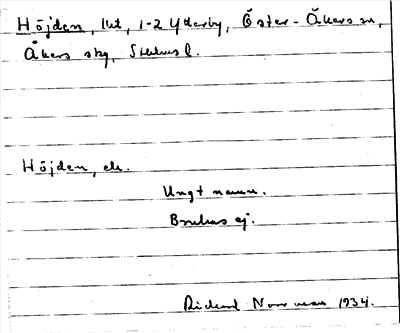 Höjden, lht, 1-2 Yderby, Öster-Åkers sn,
Åkers skg, Sthlms l.
Höjden, ele.
Ungt namn.
Brukas ej.
Rickard Norrman 1934.